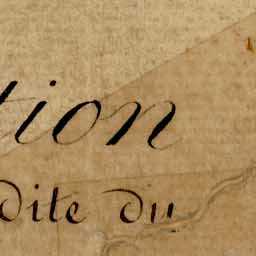 tion
dite du